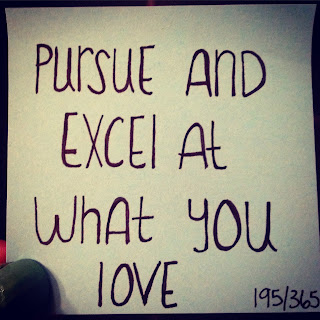 PURSUE AND
EXCEl At
WhAt YOU
lOVE
195/365